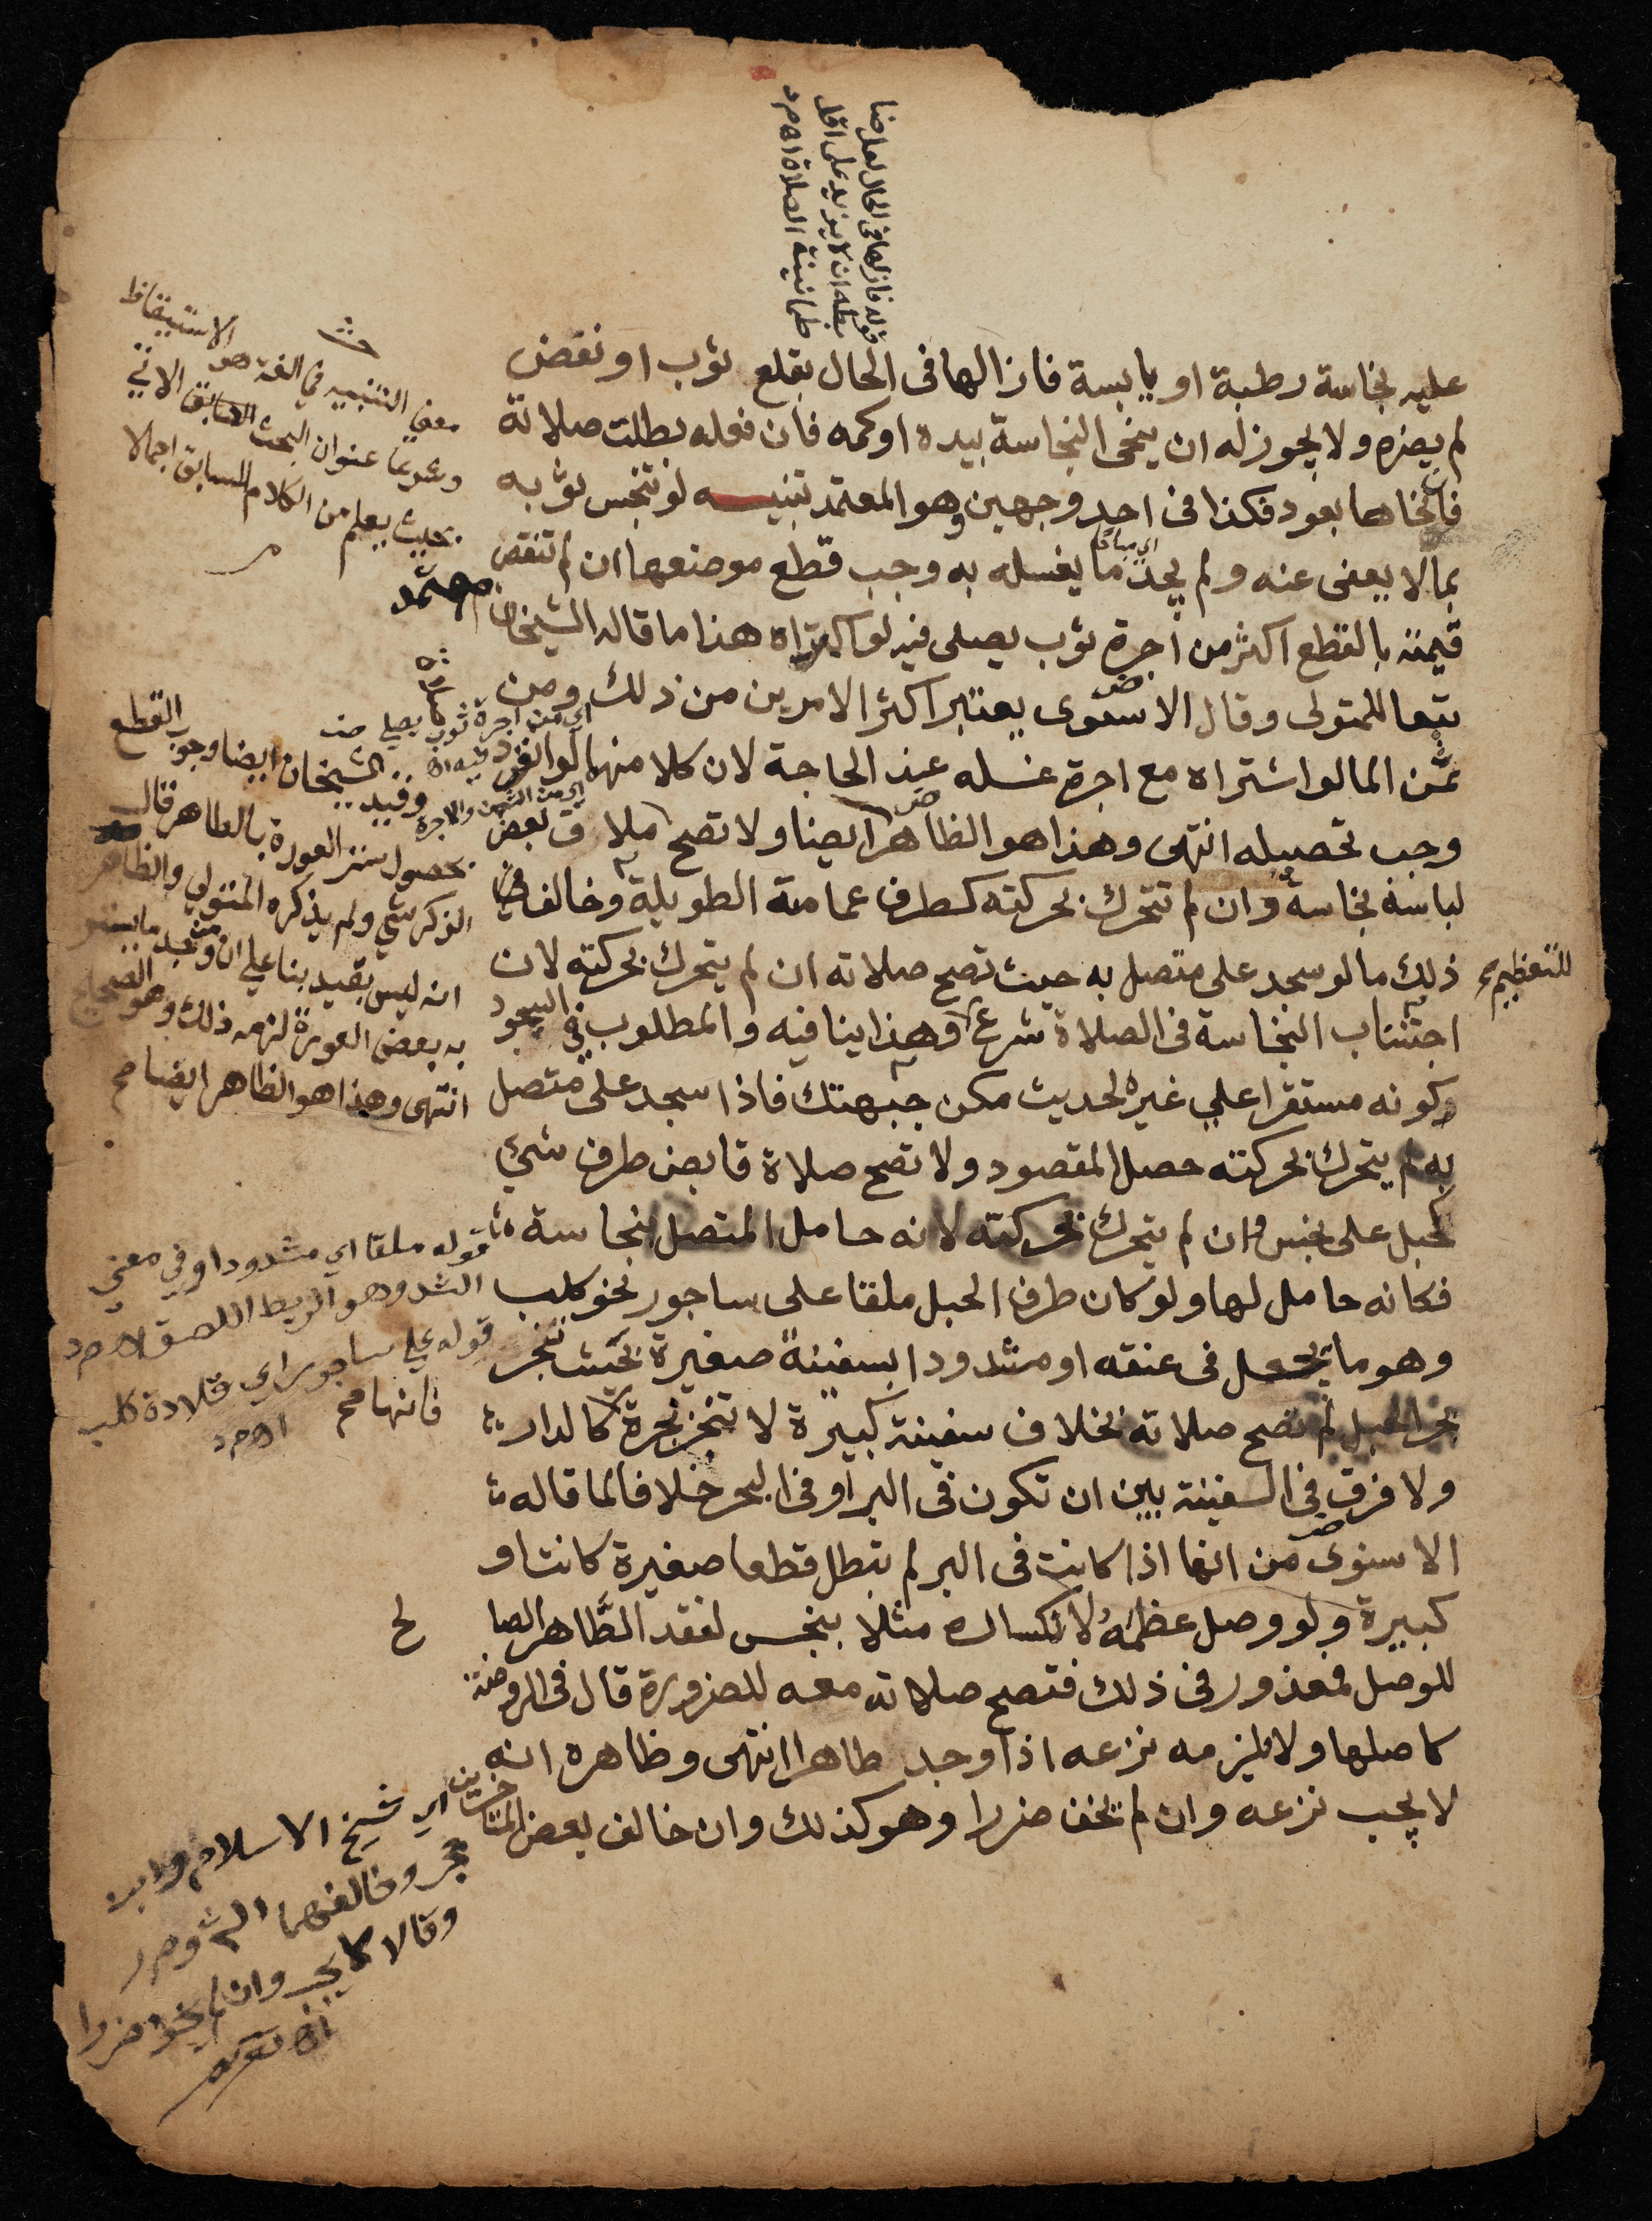 قوله فازالها في الحال لعل ضا
بطه ان لا يزيد على اقل
طمانينة الصلاة اه م د
عليه نجاسة رطبة او يابسة فازالها فى الحال بقلع ثوب او نفض
لم يضره ولا يجوز له ان ينحى النجاسة بيده او كمه فان فعله بطلت صلاته
فان نحاها بعود فكذا فى احد وجهين وهو المعتمد تنبيه لو تنجس ثوبه
بما لا يعفى عنه ولم يجد ما يغسله به وجب قطع موضعها ان لم تنقص
قيمته بالقطع اكثر من اجرة ثوب يصلى فيه لو اكتراه هذا ما قاله الشيخان
تبعا للمتولى وقال الاسنوى يعتبر اكثر الامرين من ذلك ومن
ثمن الما لو اشتراه مع اجرة غسله عند الحاجة لان كلا منهما لو انفرد
وجب تحصيله انتهى وهذا هو الظاهر ايضا ولا تصح صلاة ملاق بعض
لباسه نجاسة وان لم تتحرك بحركته كطرف عمامته الطويلة وخالف
ذلك ما لو سجد على متصل به حيث تصح صلاته ان لم يتحرك بحركته لان
اجتناب النجاسة فى الصلاة شرع للتعظيم وهذا ينافيه والمطلوب فى السجود
كونه مستقرا على غيره لحديث مكن جبهتك فاذا سجد على متصل
به لم يتحرك بحركته حصل المقصود ولا تصح صلاة قابض طرف شئ
كحبل على نجس وان لم يتحرك بحركته لانه حامل المتصل بنجاسة
فكانه حامل لها ولو كان طرف الحبل ملقا على ساجور نحو كلب
وهو ما يجعل فى عنقه او مشدودا بسفينة صغيرة بحيث تنجر
بجر الحبل لم تصح صلاته بخلاف سفينة كبيرة لا تنجر بجره كالدار
ولا فرق فى السفينة بين ان تكون فى البر او فى البحر خلافا لما قاله
الاسنوى من انها اذا كانت فى البر لم تبطل قطعا صغيرة كانت او
كبيرة ولو وصل عظمه لانكساره مثلا بنجس لفقد الطاهر الصا لح
للوصل فمعذور فى ذلك فتصح صلاته معه للضرورة قال فى الروضة
كاصلها ولا يلزمه نزعه اذا وجد طاهرا انتهى وظاهره انه
لا يجب نزعه وان لم يخف ضررا وهو كذلك وان خالف بعض المتاخرين
معنى التنبيه في اللغة هو الاستيقاظ
وعرفا عنوان البحث السابق الاتي
بحيث يعلم من الكلام السابق اجمالا
معتمد
اي من اجرة ثوب يصلي
وقيد الشيخان ايضا وجوب القطع
بحصول ستر العورة بالطاهر قال
الزركشي ولم يذكره المتولي والظاهر
انه ليس بقيد بنا على ان من وجد ما يستر
به بعض العورة لزمه ذلك وهو الصحيح
انتهى وهذا هو الظاهر ايضا صح
قوله ملقا اي مشدودا وفي معني
الشد وهو الربط اللصق اه م د
قوله على ساجور اى قلادة كلب
اه م د
اي شيخ الاسلام وابن
حجر وخالفهما
وقالا وان لم يخف ضررا